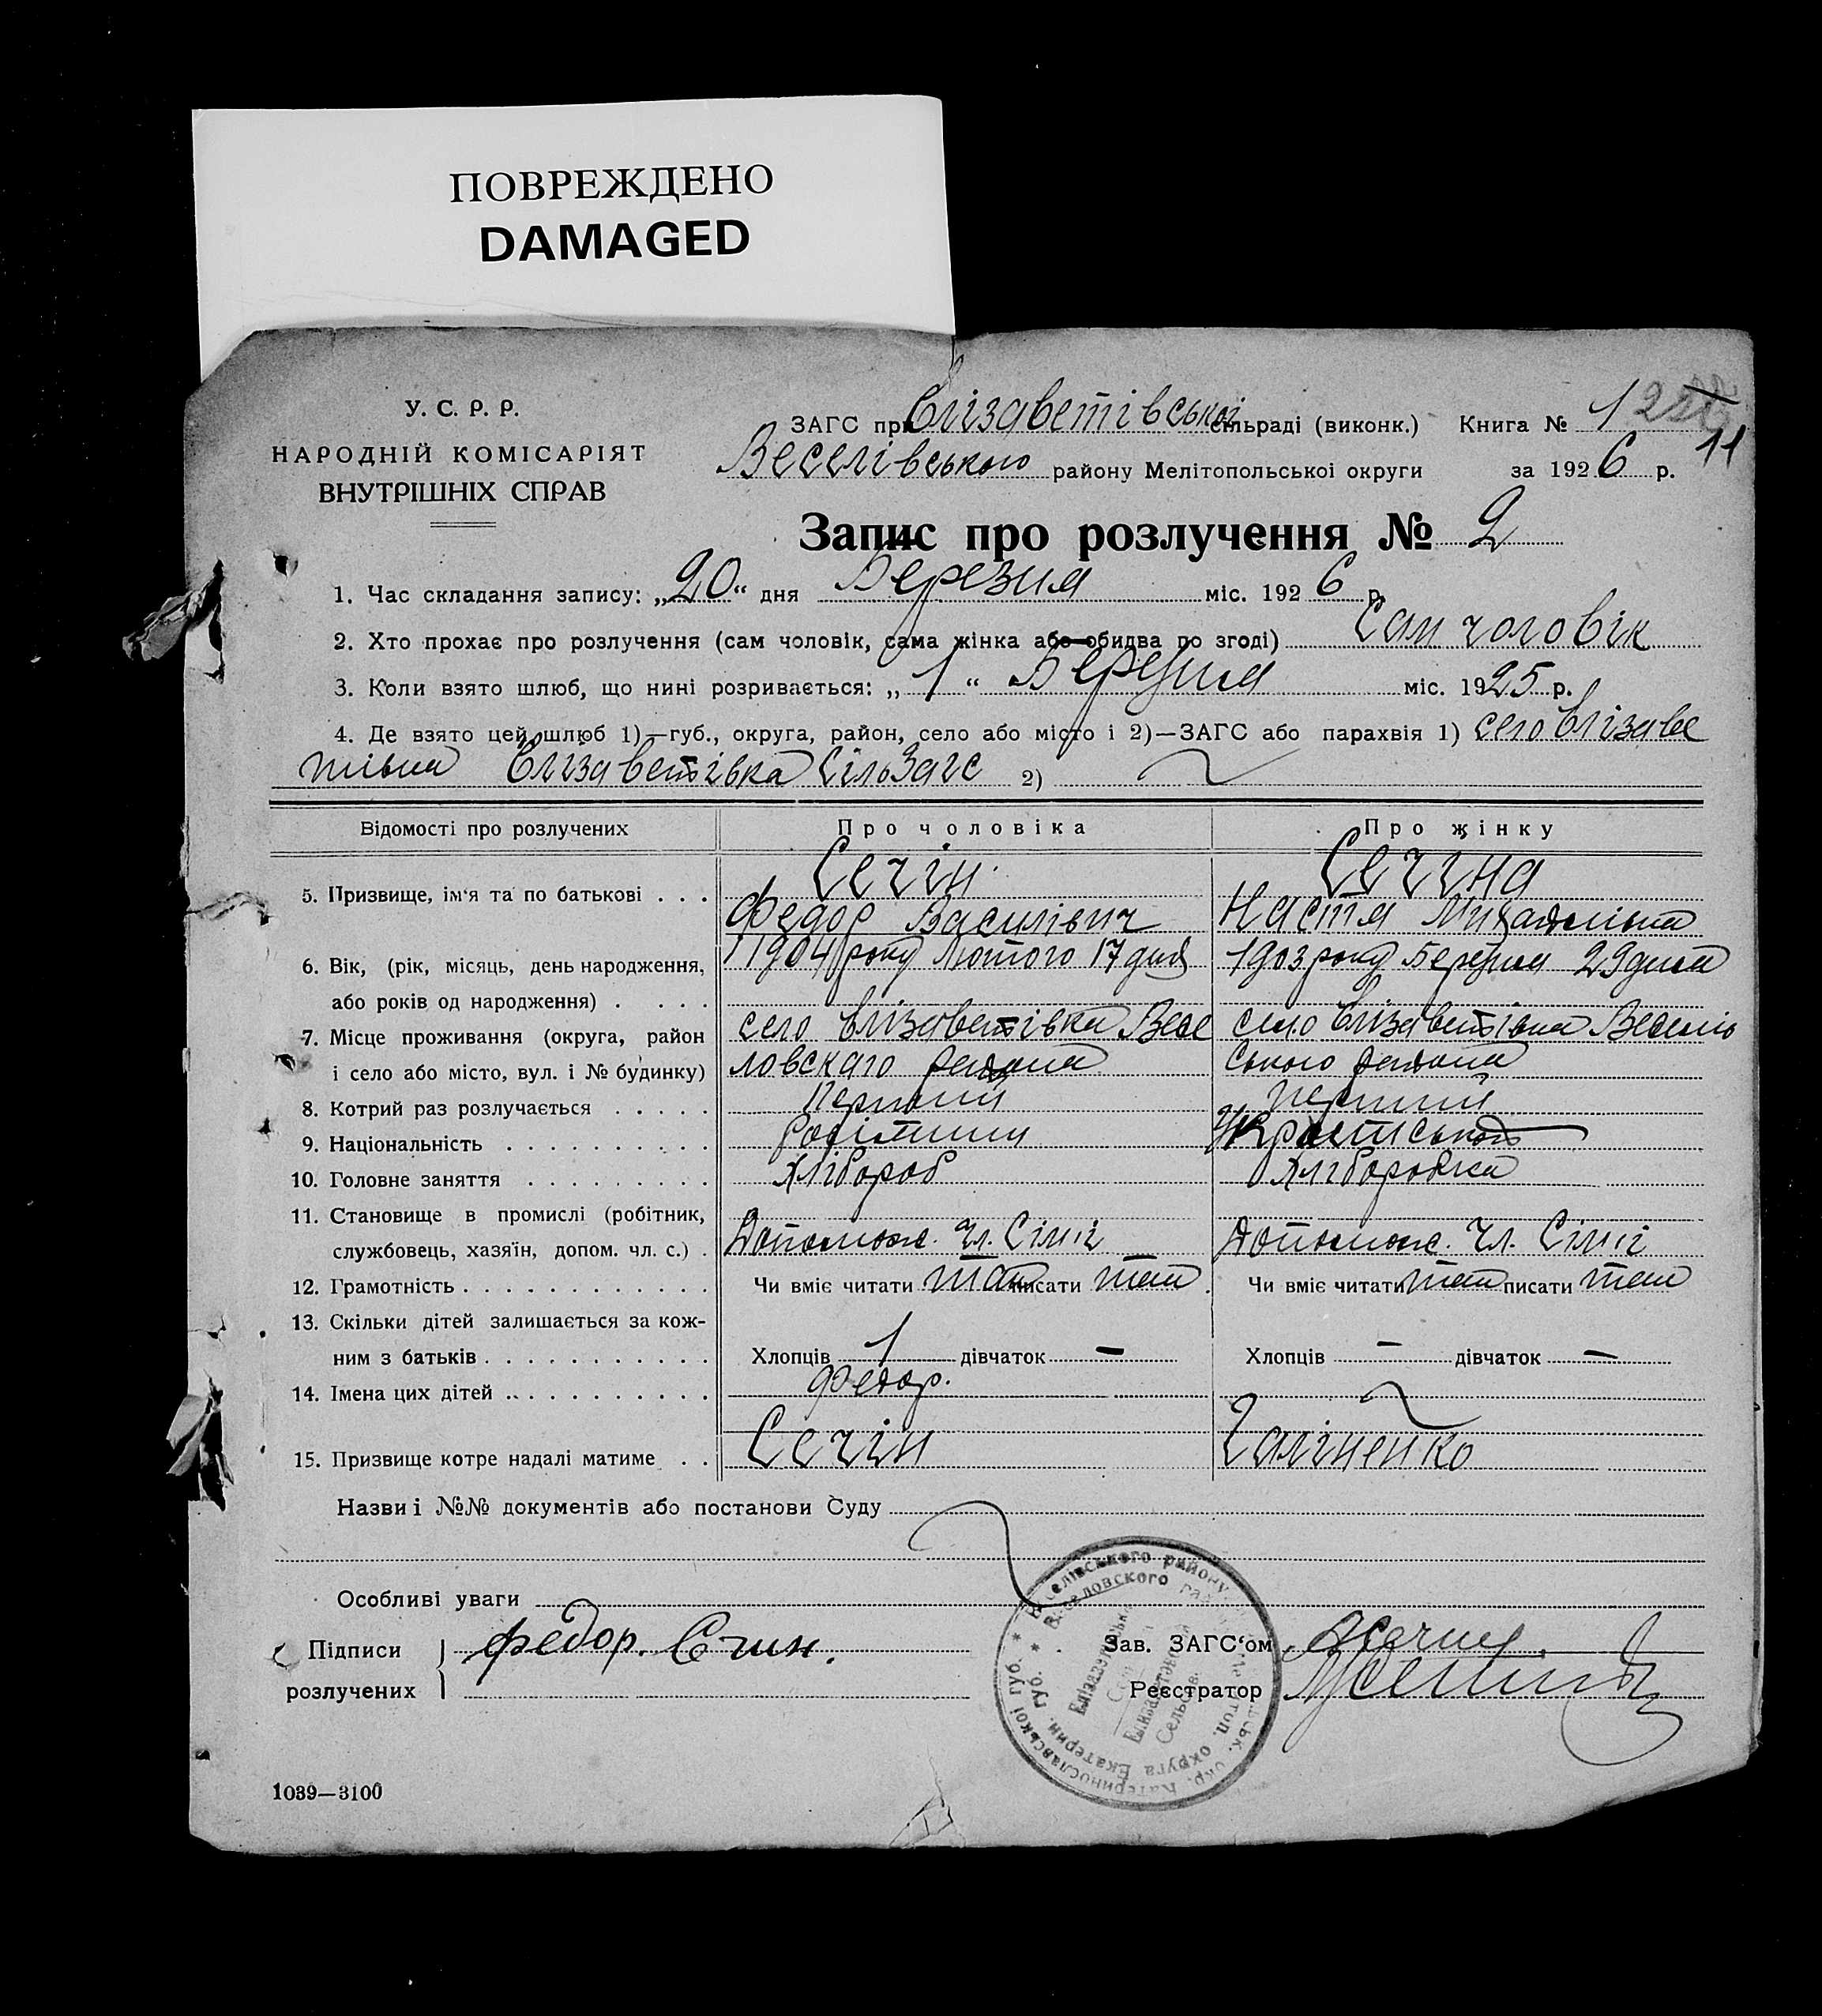 ПОВРЕЖДЕНО
DAMAGED
У. С. Р. Р.
НАРОДНІЙ КОМІСАРІЯТ
ВНУТРІШНІХ СПРАВ
ЗАГС при Єлізаветівської сільраді (виконк.) Книга № 1
11
Веселівського району Мелітопольської округи за 1926 р.
Запис про розлучення № 2
1. Час складання запису: „20“ дня Березня міс. 1926 р.
2. Хто прохає про розлучення (сам чоловік, сама жінка або обидва по згоді) Сам чоловік
3. Коли взято шлюб, що нині розривається: „1“ Березня міс. 1925 р.
4. Де взято цей шлюб 1)—губ., округа, район, село або місто і 2)—ЗАГС або парахвія 1) село Єлізаве
тівка Єлізаветівка СільЗагс 2)
Відомості про розлучених Про чоловіка Про жінку
5. Призвище, ім‘я та по батькові . . . Сечін Сечина
Федор Василівич Настя
6. Вік, (рік, місяць, день народження, 1904 року Лютого 17 дня 1903 року Березня 29 дня
або років од народження) . . . .
7. Місце проживання (округа, район село Єлізаветівка Весе село Єлізаветівка Веселів
і село або місто, вул. і № будинку) ловскаго района ського района
8. Котрий раз розлучається . . . . . Перший перший
9. Національність . . . . . . . . . .
10. Головне заняття . . . . . . . . . Хлібороб Хліборобка
11. Становище в промислі (робітник,
службовець, хазяїн, допом. чл. с.) . Допомож. Чл. Сімії Допомож. Чл. Сімії
12. Грамотність . . . . . . . . . . . . Чи вміє читати так писати так Чи вміє читати так писати так
13. Скільки дітей залишається за кож-
ним з батьків . . . . . . . . . . . Хлопців 1 дівчаток — Хлопців — дівчаток —
14. Імена цих дітей . . . . . . . . . . Федор.
15. Призвище котре надалі матиме . . Сечін Галіненко
Назви і №№ документів або постанови Суду
Особливі уваги
Підписи
розлучених
федор. Счин.
Зав. ЗАГС‘ом
Реєстратор
1039—3100